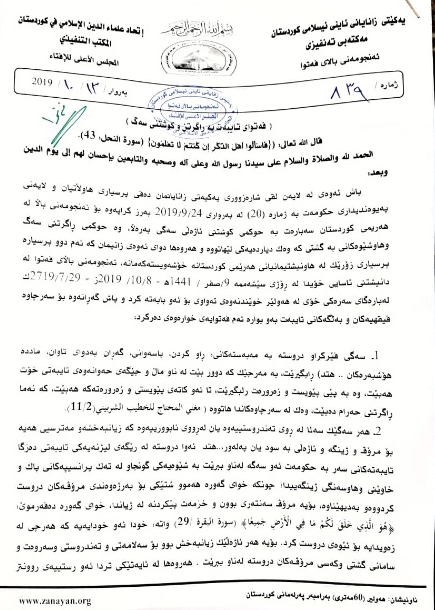 یەکێتی زانایانی ئاینی ئیسلامی کوردستان
مەکتەبی تەنفیزی
ئەنجومەنی باڵای فەتوا
بسم الله الرحمن الرحيم
إتحاد علماء الدين الإسلامي في كوردستان
المكتب التنفيذي
المجلس الأعلى للإفتاء
ژمارە / ٨٣٩
بەروار / ١٣ / ١٠ / 2019
( فەتوای تایبەت بە ڕاگرتن و کوشتنی سەگ )
قال الله تعالى: ((فاسألوا أهل الذكر إن كنتم لا تعلمون) (سورة النحل: 43).
الحمد لله والصلاة والسلام على سيدنا رسول الله وعلى آله وصحبه والتابعين بإحسان لهم إلى يوم الدين
وبعد:
پاش ئەوەی لە لایەن لقی شارەزووری یەکیەتی زانایانمان دەقی پرسیاری هاوڵاتیان و لایەنی
پەیوەندیداری حکومەت بە ژمارە (20) لە بەرواری 2019/9/24 بەرز کرایەوە بۆ ئەنجومەنی باڵا لە
هەرێمی کوردستان سەبارەت بە حوکمی کوشتنی ئاژەڵی سەگی بەرەڵا، وە حوکمی ڕاگرتنی سەگ
وهاوشێوەکانی بە گشتی کە وەک دیاردەیەکی لێهاتووە و هەروەها دوای ئەوەی زانیمان کە ئەم دوو پرسیارە
پرسیاری زۆرێک لە هاونیشتیمانیانی هەرێمی کوردستانە خۆشەویستەکەمانە، ئەنجومەنی باڵای فەتوا
دانیشتنی ئاسایی خۆیدا لە ڕۆژی سێشەممە 9/صفر / 1441هـ - 10/8/ 2019ز - 2719/7/29ک
لەبارەگای سەرەکی خۆی لە هەولێر خوێندنەوەی تەواوی بۆ ئەو بابەتە کرد و پاش گەڕانەوە بۆ سەرچاوە
فیقهیەکان و بەڵگەکانی تایبەت بەو بوارە ئەم فەتوایەی خوارەوەی دەرکرد:
1. سەگی فێرکراو دروستە بە مەبەستەکانی: ڕاو کردن، پاسەوانی، گەڕان بەدوای تاوان، ماددە
هۆشبەرەکان .. هتد) ڕابگیرێت، بە مەرجێک کە دوور بێت لە ناو ماڵ و جێگەی حەوانەوەی تایبەتی خۆت
هەبێت، وە بە پێی پێویست و زەرورەت ڕابگیرێت، تا ئەو کاتەی پێویستی و زەرورەتەکە هەبێت، کە نەما
ڕاگرتنی حەرام دەبێت، وەک لە سەرچاوەکاندا هاتووە ( مغني المحتاج للخطيب الشربيني(11/2)
2. هەر سەگێک سەلا لە ڕوی تەندروستییەوە یان لەڕووی ئابوورییەوە کە زیانبەخشەو مەترسی هەیە
بۆ مرۆڤ و ژینگە و ئاژەڵی بە سود یان پەلەوەر...هتد ئەوا دروستە لە ڕێگەی لیژنەیەکی تایبەتی دەزگا
تایبەتەکانی سەر بە حکومەت ئەو سەگە لەناو ببرێت بە شێوەیەکی گونجاو لە تەک پرانسیپەکانی پاک و
خاوێنی وهاوسەنگی ژینگەییدا؛ چونکە خوای گەورە هەموو شتێکی بۆ بەرژەوەندی مرۆڤەکان دروست
کردووەو بەدیهێناوە، بۆیە مرۆڤ سەنتەری بوون و خزمەت پێکردنە لە ژیاندا، خوای گەورە دەفەرموێ:
﴿هُوَ الَّذِي خَلَقَ لَكُمْ مَا فِي الْأَرْضِ جَمِيعًا﴾ (سورة البقرة /29) واتە: خودا ئەو خودایەیە کە هەرچی لە
زەویدایە بۆ ئێوەی دروست کرد. بۆیە هەر ئاژەڵێک زیانبەخش بوو بۆ سەلامەتی و تەندروستی وسەروەت و
سامانی گشتی وکەسی مرۆڤەکان دروستە لەناو ببرێت . هەروەها لە ئایەتێکی تردا ئەو ڕستیەی ڕوونتر
www.zanayan.org
ناونیشان: هەولێر (60مەتری) بەرامبەر پەرلەمانی کوردستان